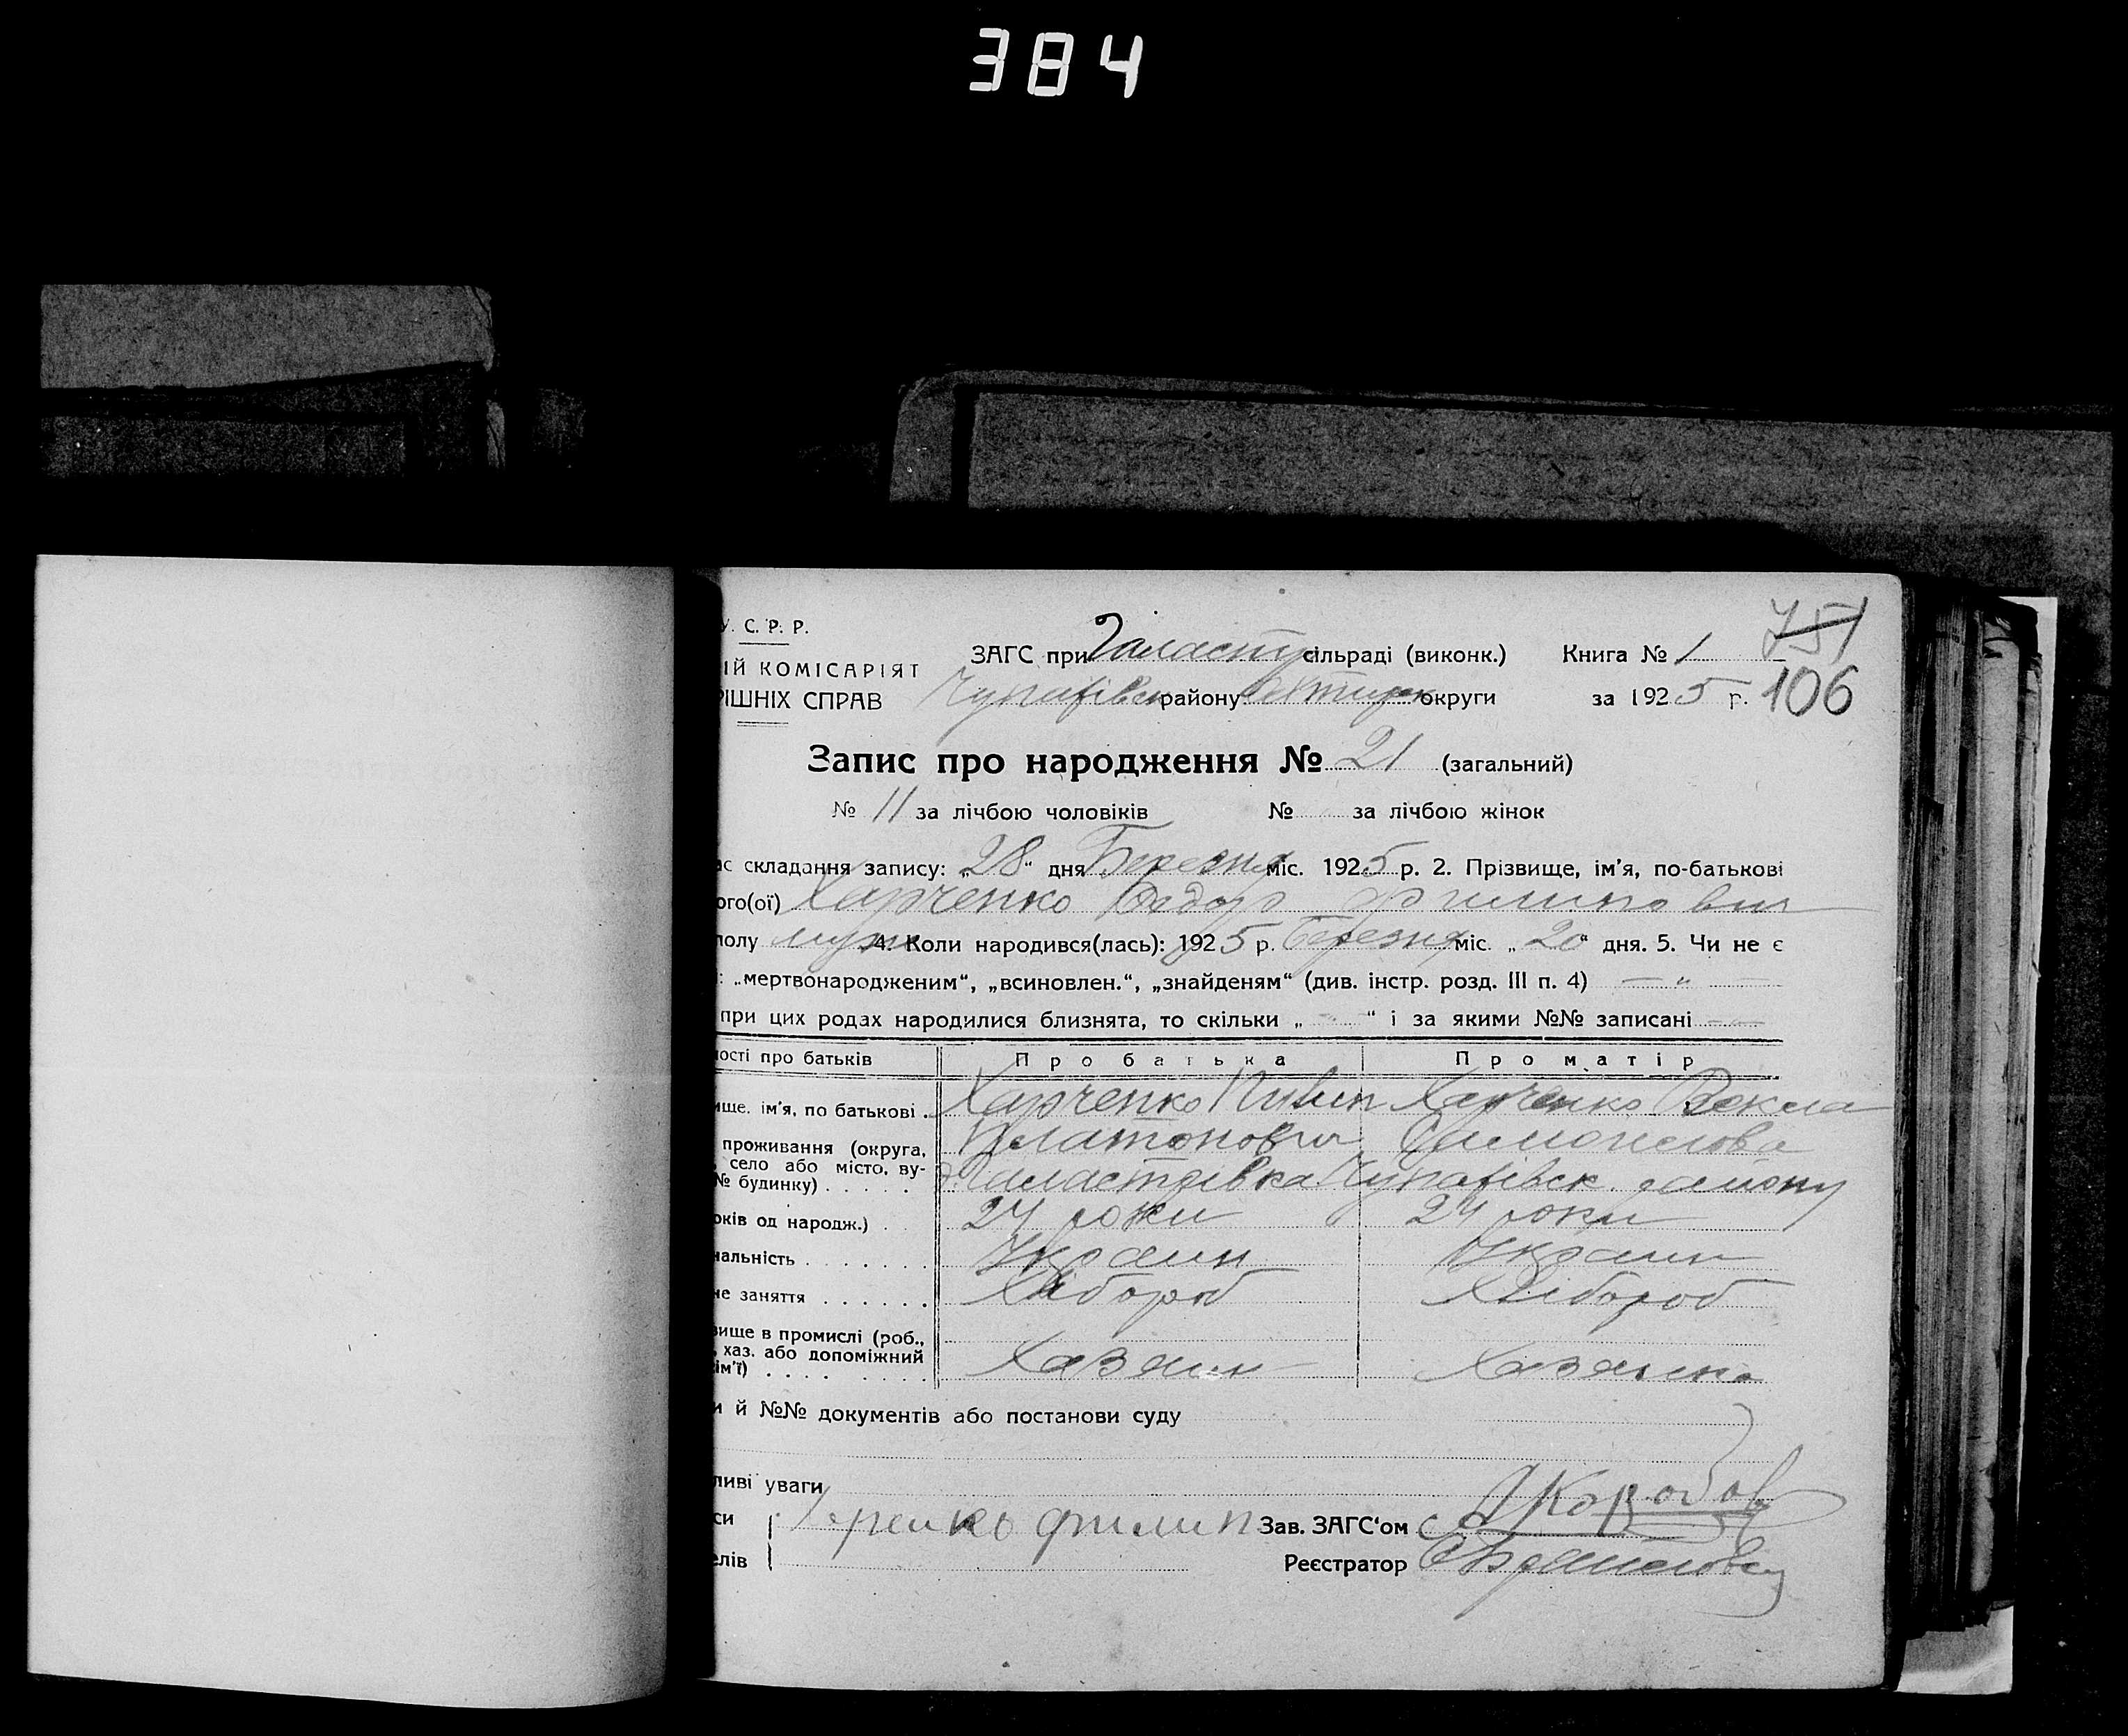 384
У. С. Р. Р.
ІЙ КОМІСАРІЯТ
РІШНІХ СПРАВ
ЗАГС при сільраді (виконк.)
Книга № 1
751
Чупахівськ району Охтирк округи
за 1925 р.
106
Запис про народження № 21 (загальний)
№ 11 за лічбою чоловіків № за лічбою жінок
ас складання запису: „28“ дня Березня міс. 1925 р. 2. Прізвище, ім'я, по-батькові
ого(ої) Харченко Федор Филипович
полу муж 4. Коли народився(лась): 1925 р. Березня міс. „20“ дня. 5. Чи не є
: „мертвонародженим“, „всиновлен.“, „знайденям“ (див. інстр. розд. III п. 4) — „ —
при цих родах народилися близнята, то скільки „ — “ і за якими №№ записані —
ості про батьків Про батька Про матір
ище. ім'я, по батькові . Харченко Харченко
проживання (округа, Платонович
село або місто, ву-
№ будинку) . . . . . Чупахівск району
оків од народж.) . 24 роки 24 роки
нальність . . . . . . . Украин Украин
не заняття . . . . . . Хлібороб Хлібороб
вище в промислі (роб.,
, хаз. або допоміжний
ім'ї) . . . . . . . . Хазяин Хазяика
и й №№ документів або постанови суду
ливі уваги
си Филип Зав. ЗАГС'ом
елів Реєстратор